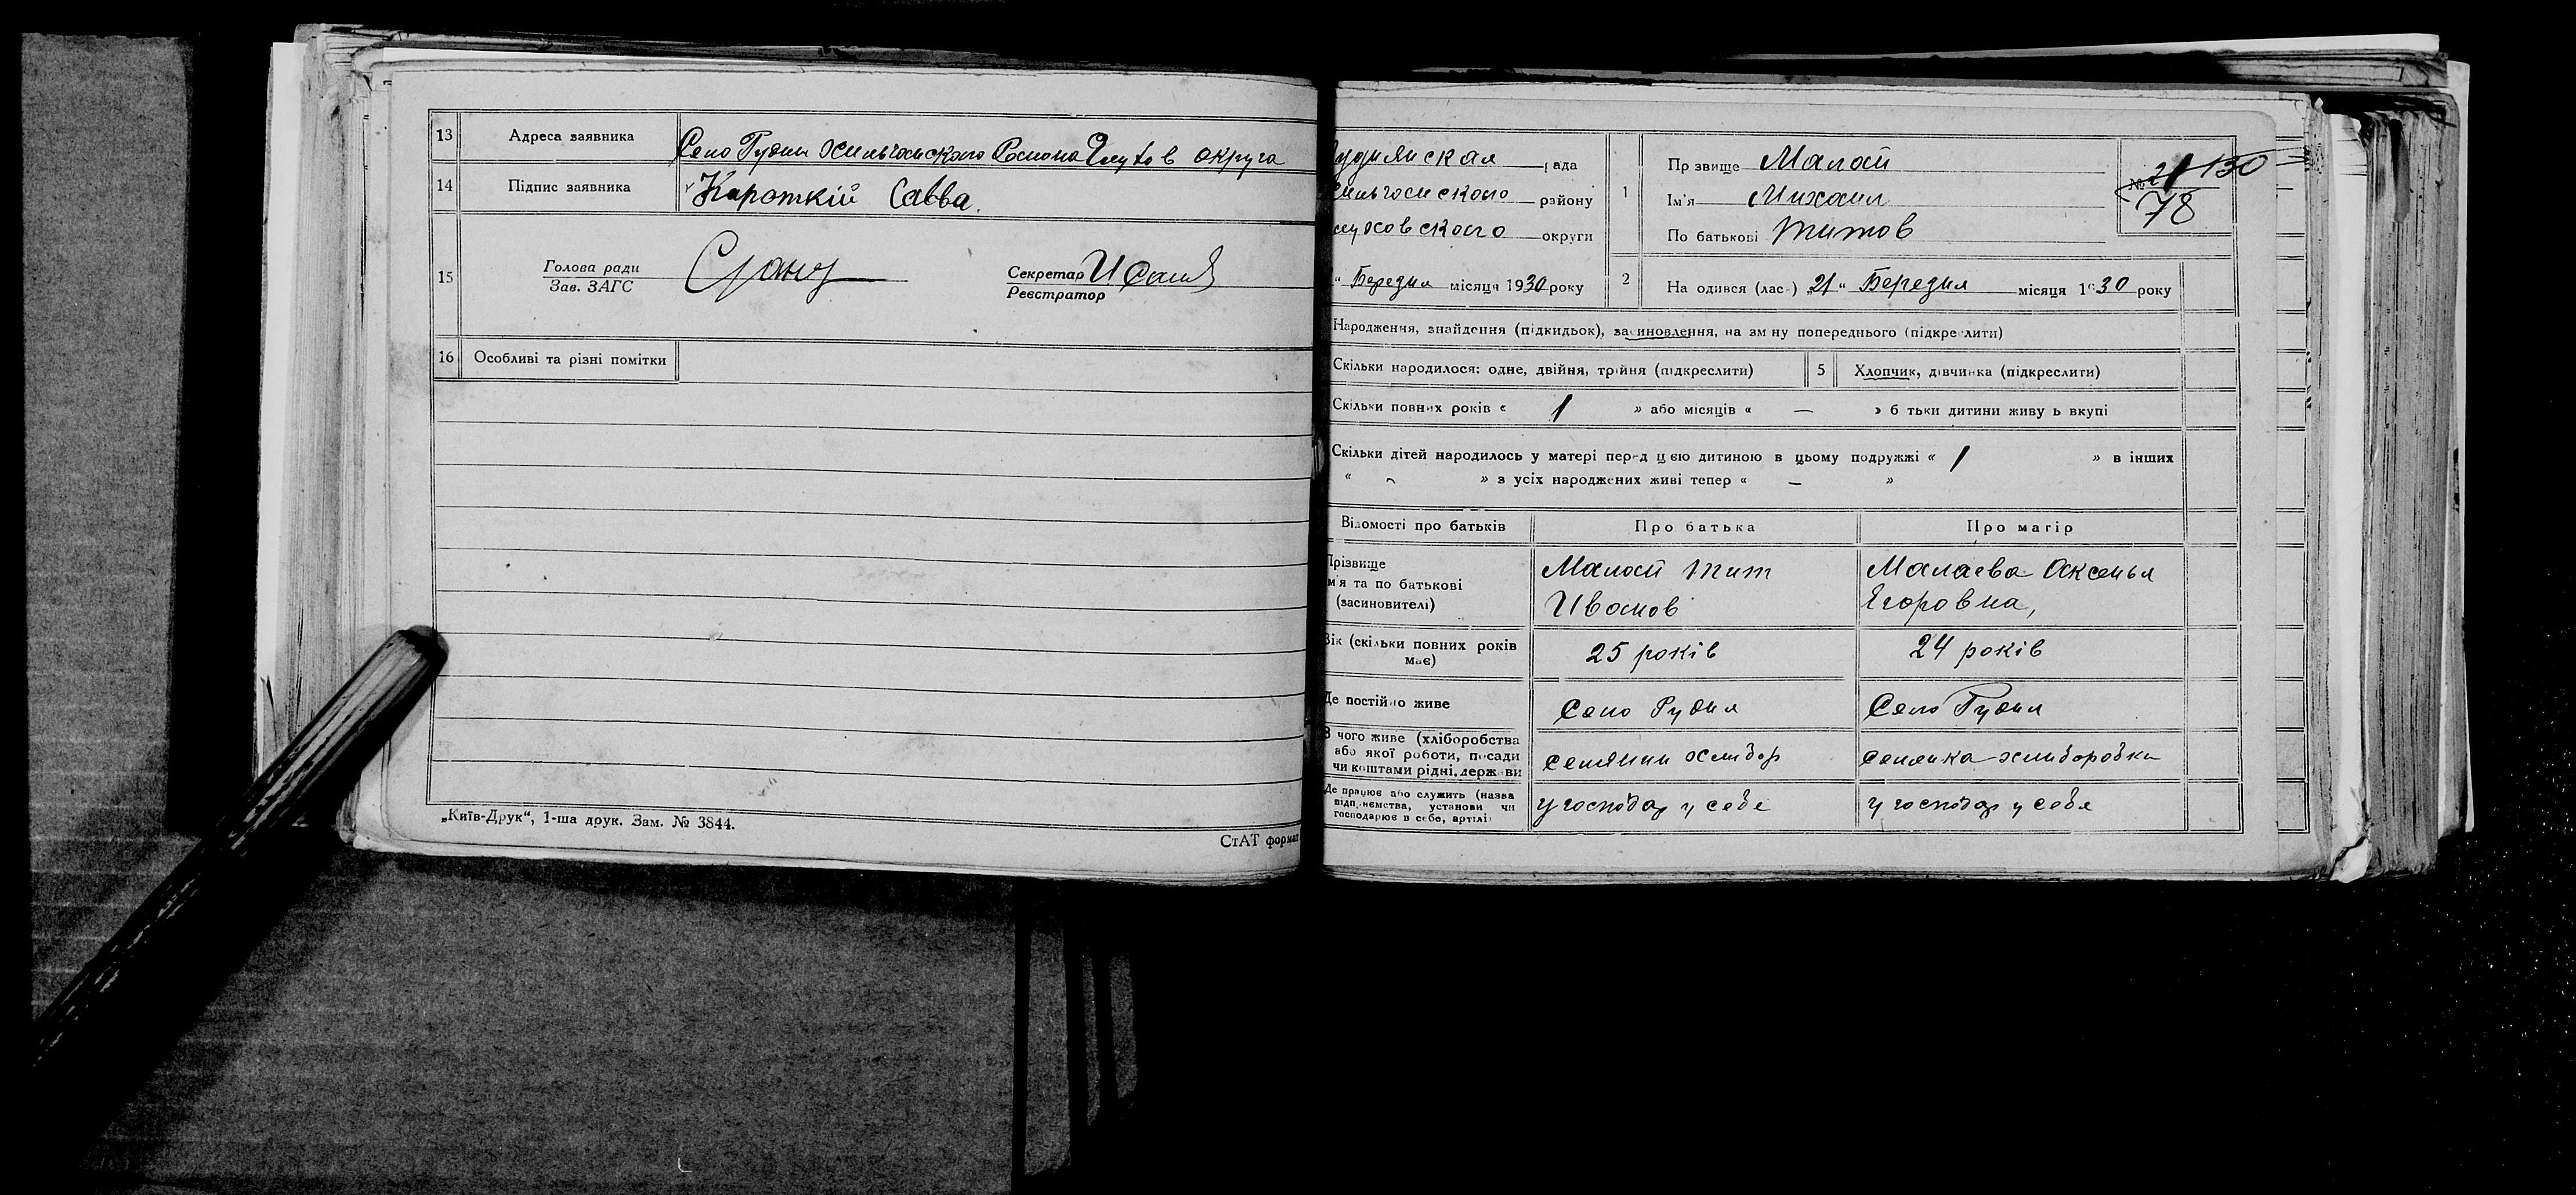 13 Адреса заявника Село Рудни Округа
14 Підпис заявника Кароткій Савва.
15 Голова ради Секретар
Зав. ЗАГС Реєстратор
16 Особливі та різні помітки
„Київ-Друк“, 1-ша друк. Зам. № 3844.
СтАТ формат
рада
району
округи
" Березня місяця 1930 року
1 Пр звище Малай
Ім'я Михаил
По батькові Титов
№ 21 130
78
2 На одився (лас-) „21" Березня місяця 1930 року
Народження, знайдення (підкидьок), засиновлення, на зм ну попереднього (підкреслити)
Скільки народилося: одне, двійня, трійня (підкреслити) 5 Хлопчик, дівчинка (підкреслити)
Скільки повних років « 1 » або місяців « — » б тьки дитини живу ь вкупі
Скільки дітей народилось у матері перед цією дитиною в цьому подружжі « 1 » в інших
« » з усіх народжених живі тепер « — »
Відомості про батьків Про батька Про матір
Прізвище Малай Тит Малаева Аксенья
м'я та по батькові Иванов Ягоровна,
(засиновителі)
Вік (скільки повних років має) 25 років 24 років
Де постійно живе Село Рудня Село Рудня
З чого живе (хліборобства
або якої роботи, посади
чи коштами рідні, держави
Де працює або служить (назва
підприємства, установи чи
господарює в себе, артілі у господар у себе у господар у себя